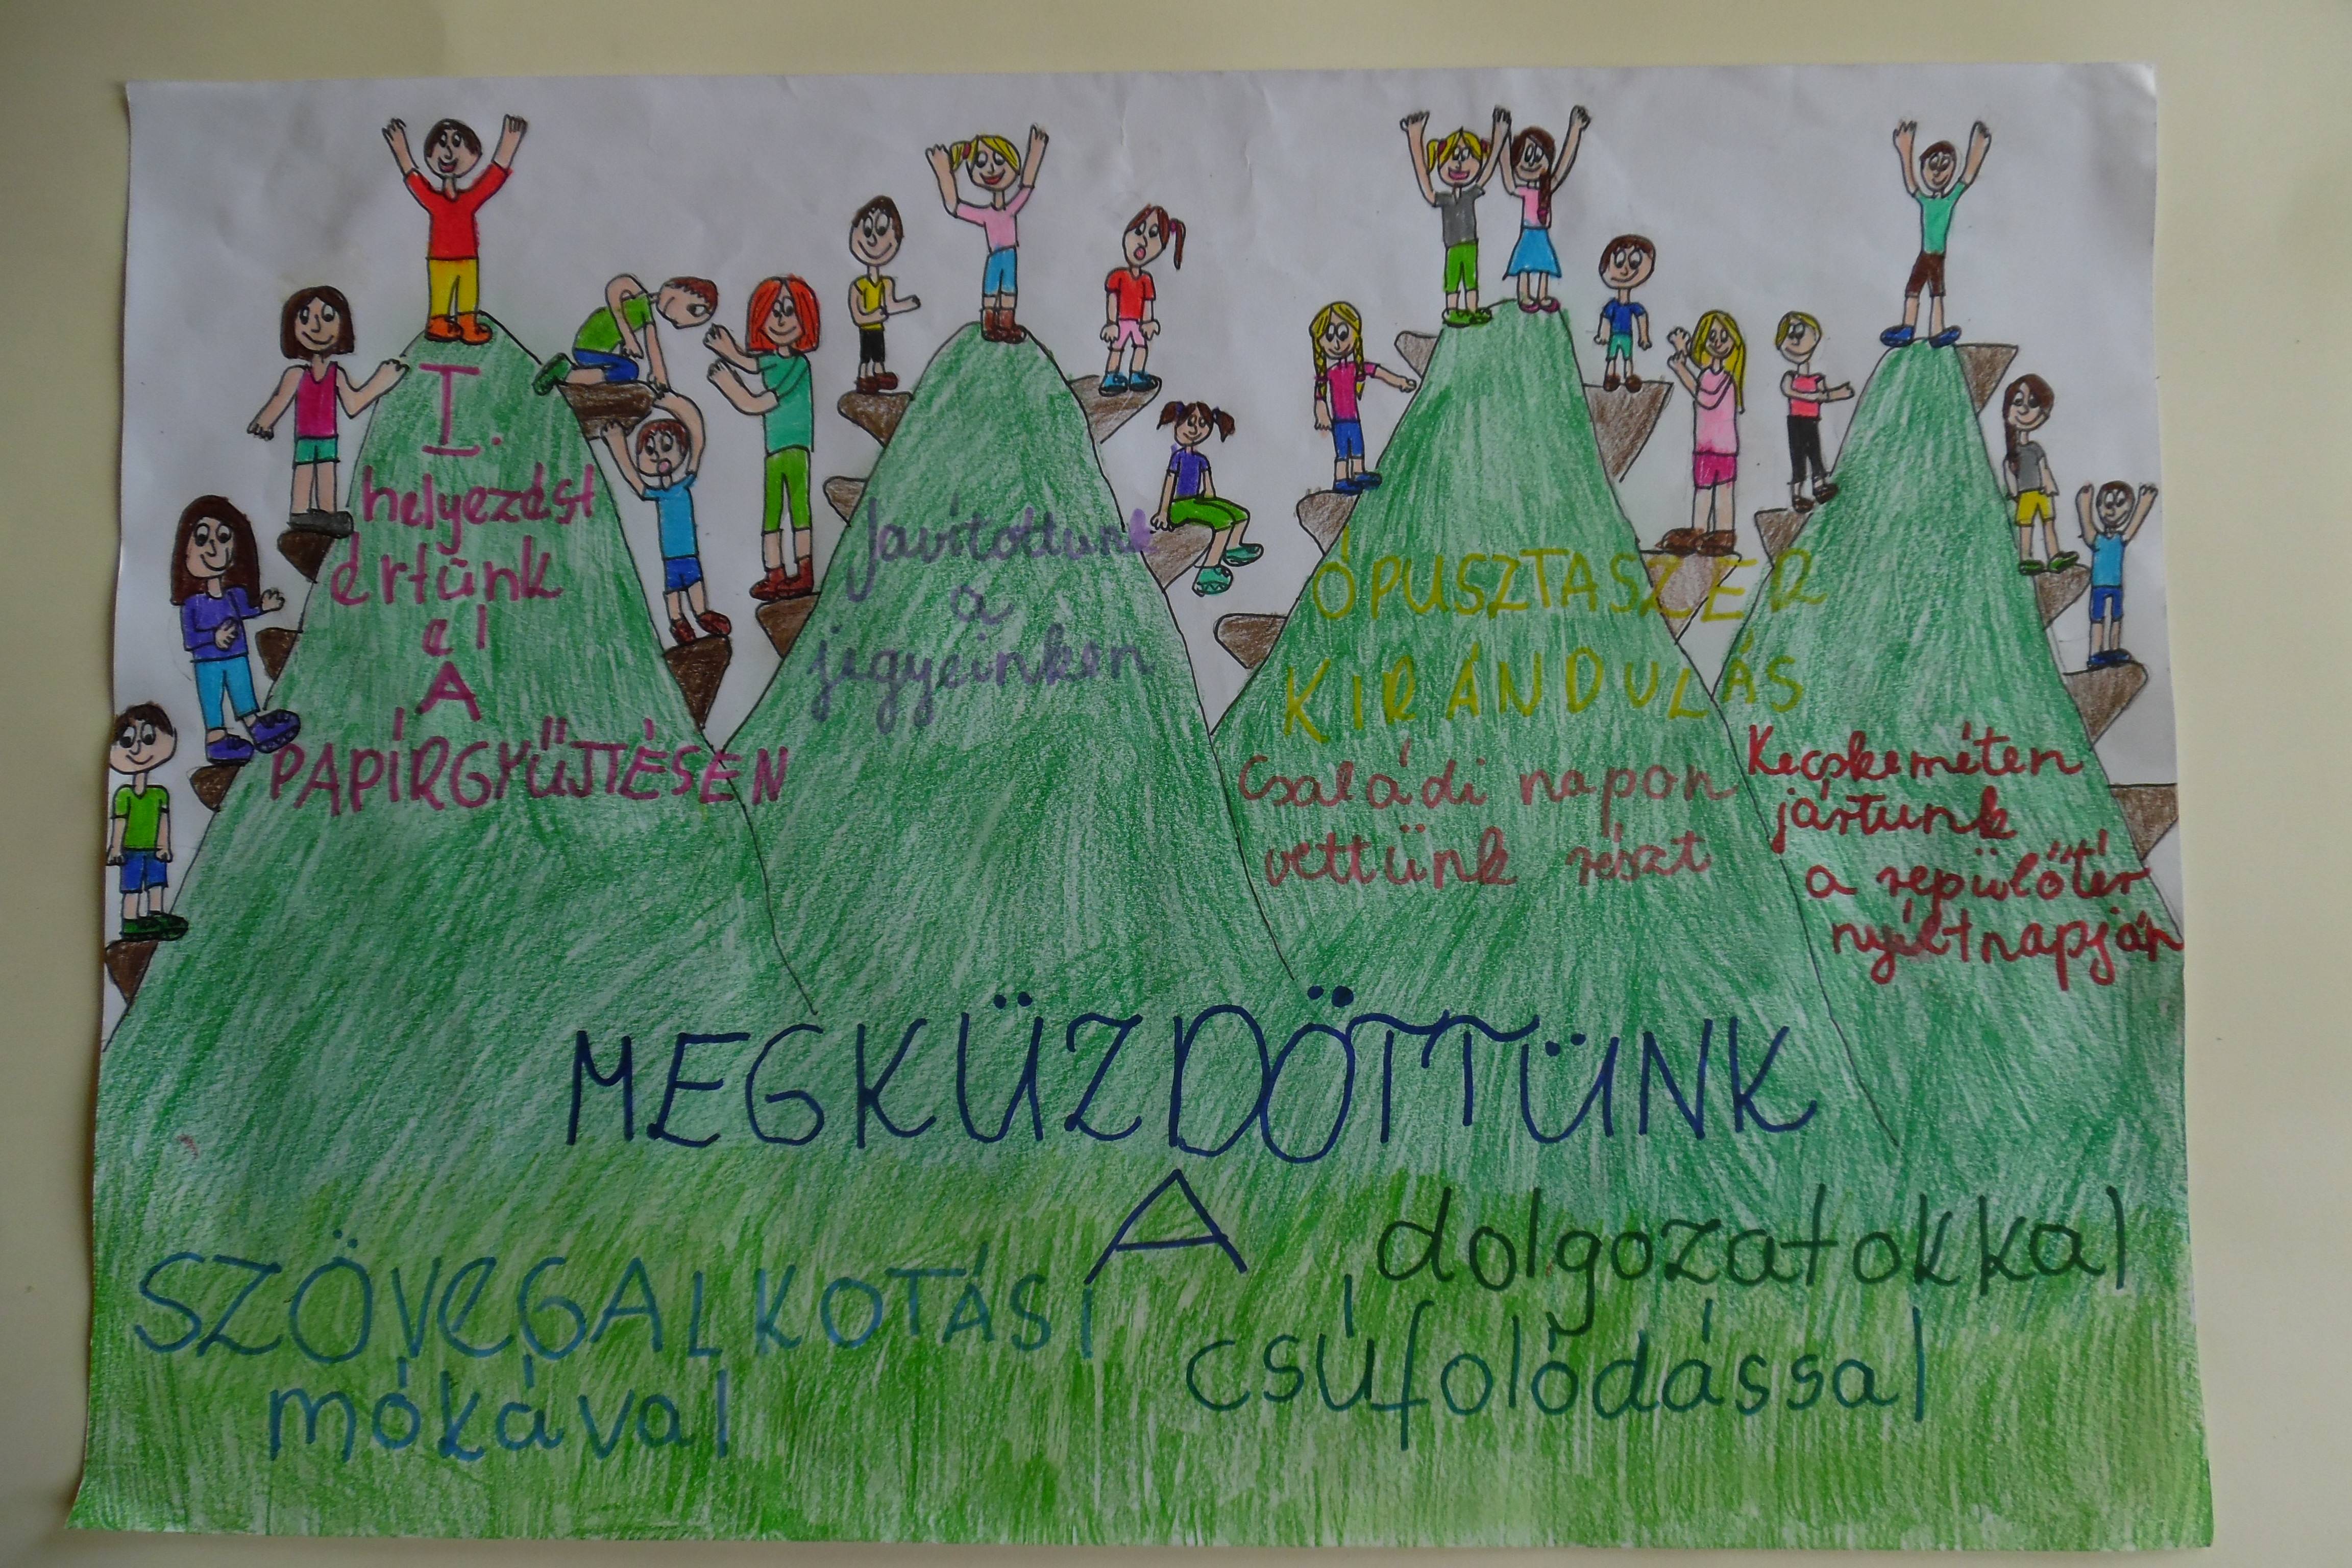 I.
helyezést
értünk
el
A
PAPÍRGYŰJTÉSEN
Javítottunk
a
jegyeinken
ÓPUSZTASZER
KIRÁNDULÁS
Családi napon
vettünk részt
Kecskeméten
jártunk
a repülőtér
nyílt napján
MEGKÜZDÖTTÜNK
A
SZÖVEGALKOTÁSI
mókával
dolgozatokkal
csúfolódással